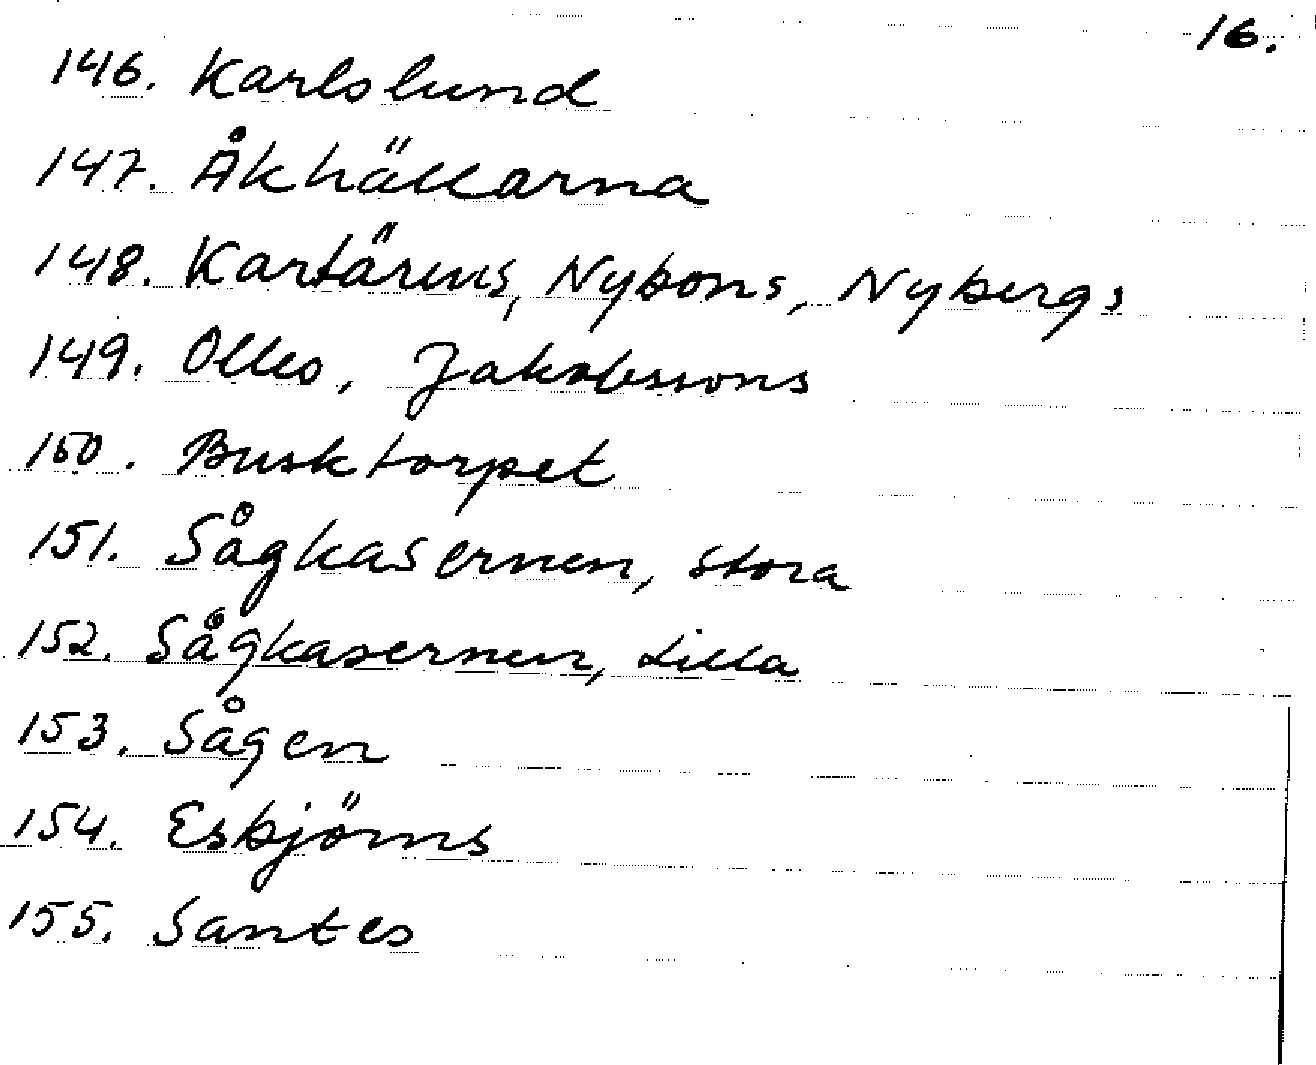 16.
146. Karlslund
147. Åkhällarna
148. Kartärens, Nybons, Nybergs
149. Olles, Jakobssons
150. Busktorpet
151. Sågkasernen, stora
152. Sågkasernen, Lilla
153. Sågen
154. Esbjörns
155. Santes